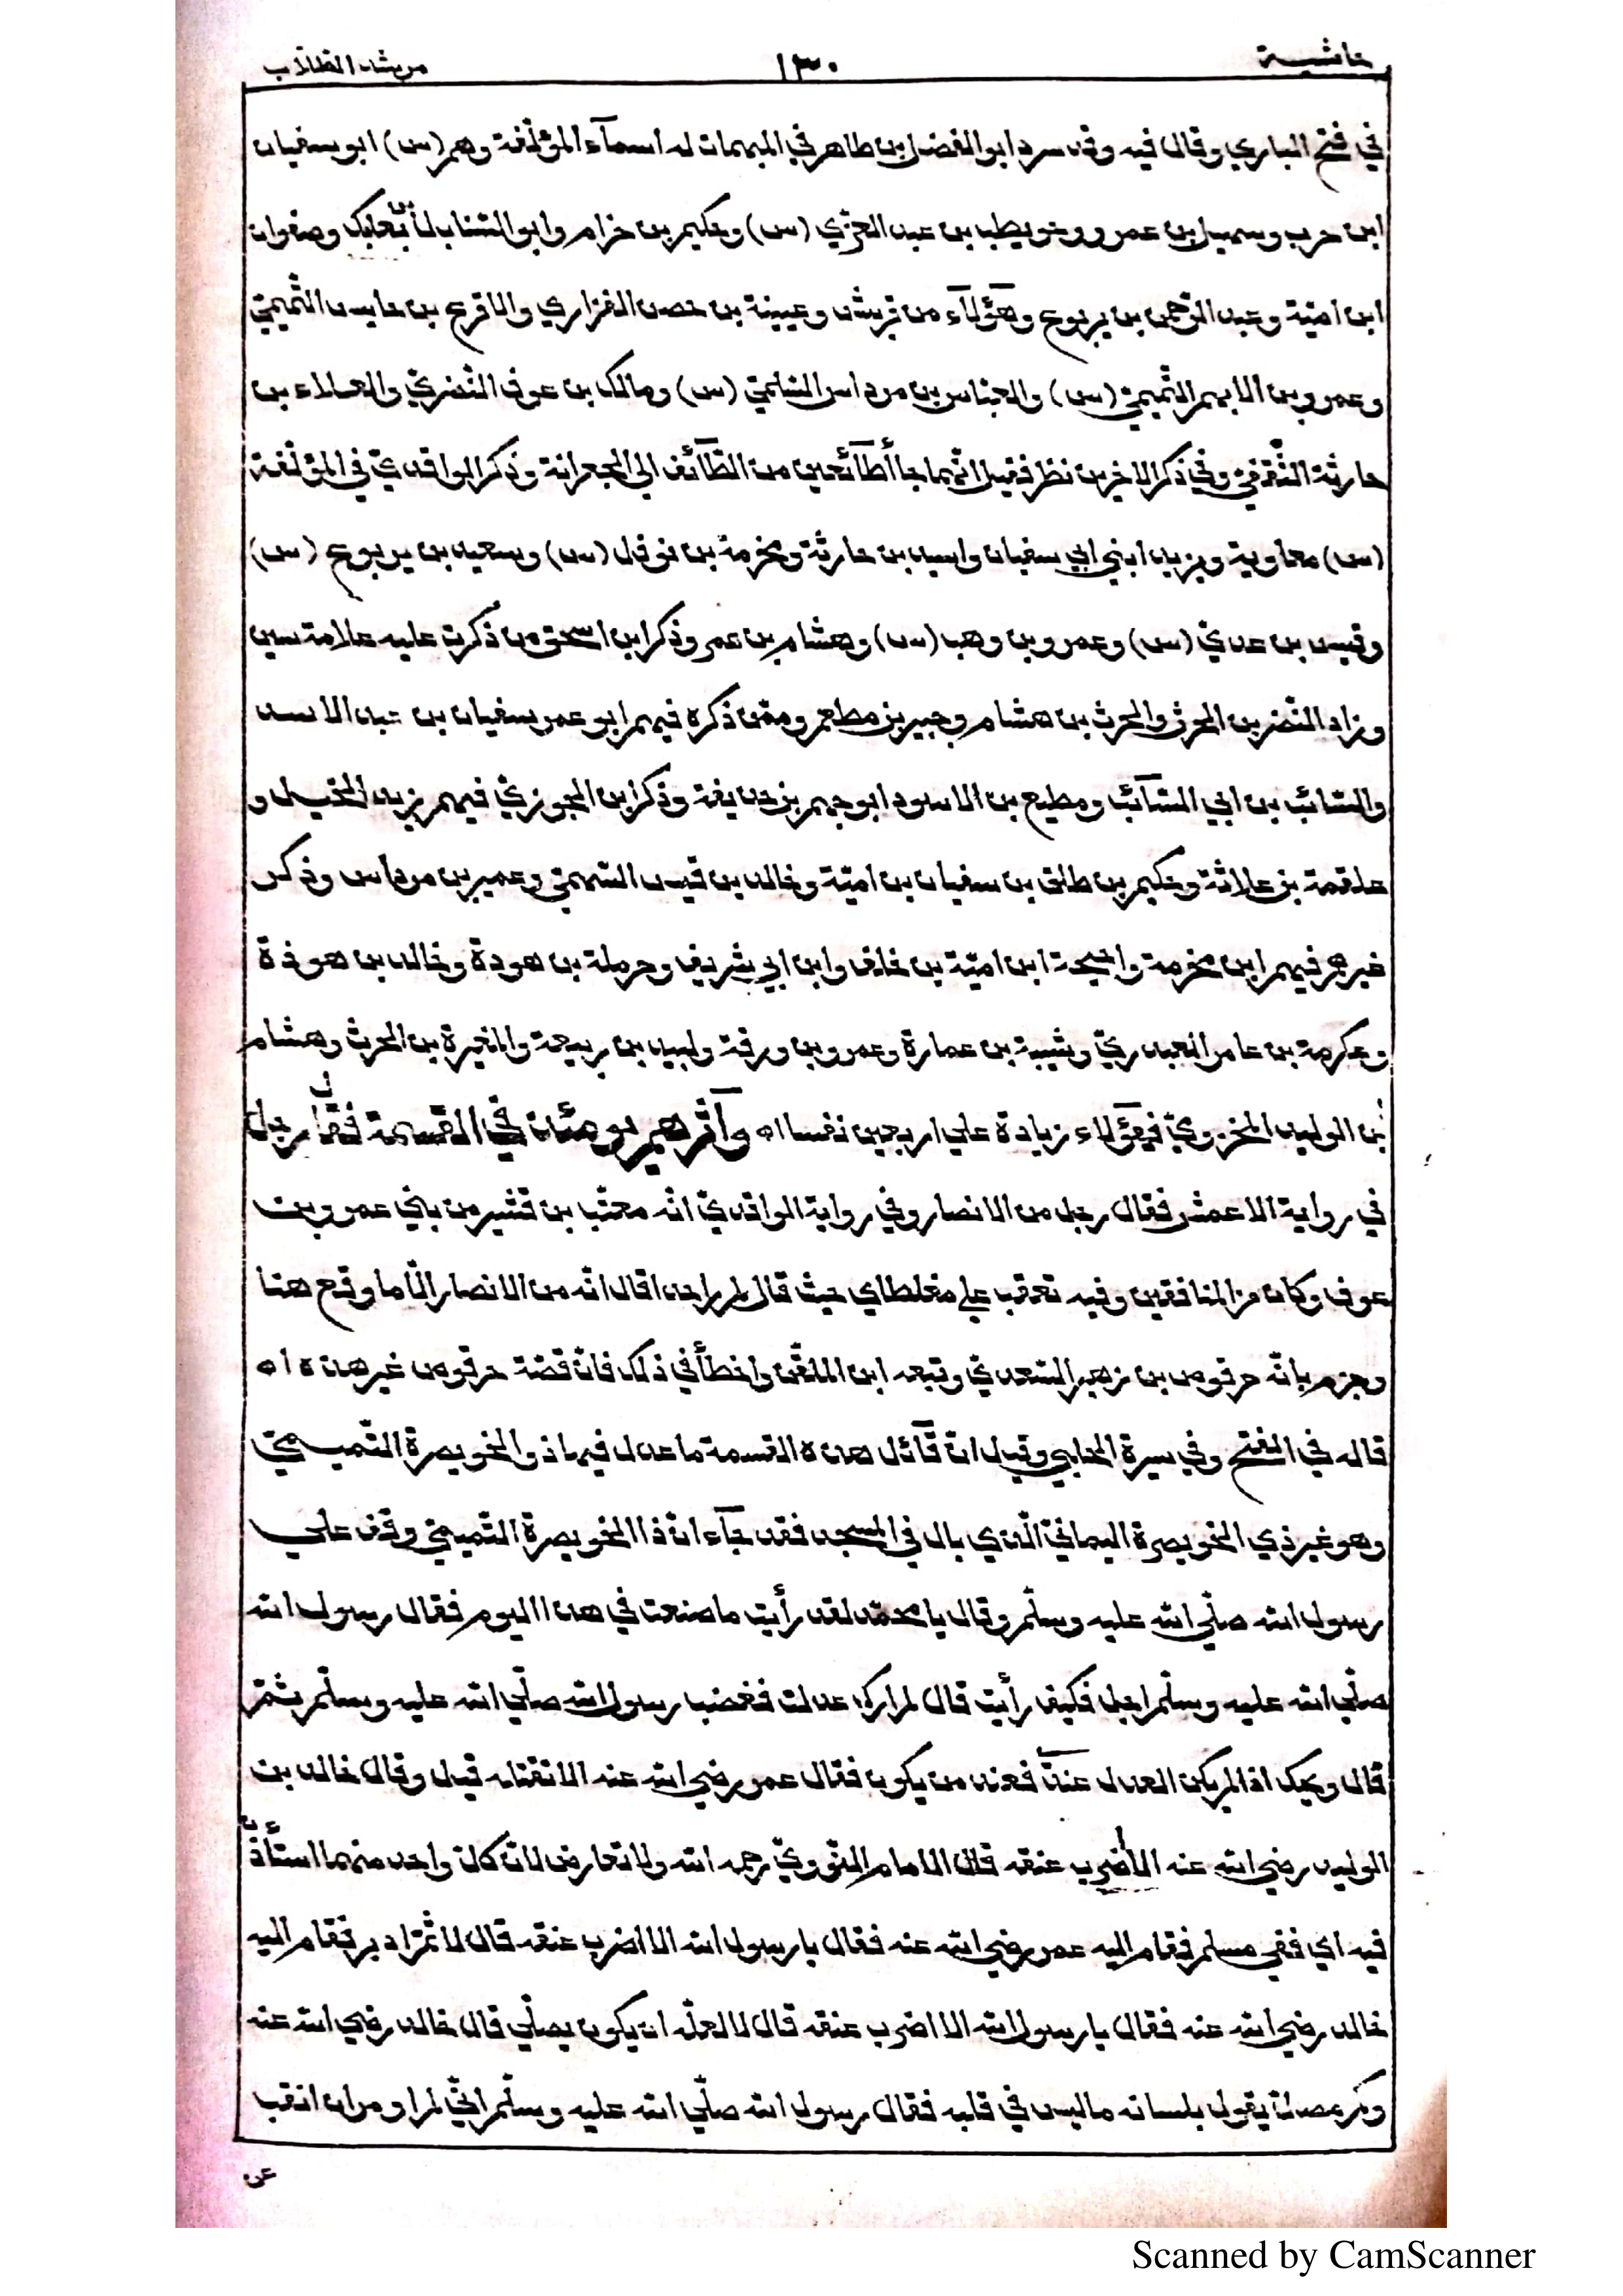 حاشية ١٣٠ مرشد الطلاب
في فتح الباري وقال فيه وقد سرد ابو الفضل بن طاهر في المبهمات له اسمآء المؤلّفة وهم (س) ابو سفيان
ابن حرب وسهيل بن عمرو وحويطب بن عبد العزّي (س) وحكيم بن حزام وابو السّنابل بن بعكك وصفوان
ابن اميّة وعبد الرّحمن بن يربوع وهؤلآء من قريش وعيينة بن حصن الفزاري والاقرع بن حابس التّميميّ
وعمرو بن الايهم التّميميّ (س) والعبّاس بن مرداس السّلميّ (س) ومالك بن عوف النّضريّ والعلاء بن
حارثة الثّقفيّ وفي ذكر الاخيرين نظر فقيل انّهما جاأ طآئعين من الطّآئف الي الجعرانة وذكر الواقديّ في المؤلّفة
(س) معاوية ويزيد ابني ابي سفيان واسيد بن حارثة ومخرمة بن نوفل (س) وسعيد بن يربوع (س)
وقيس بن عديّ (س) وعمرو بن وهب (س) وهشام بن عمر وذكر ابن اسحق من ذكرت عليه علامة سين
وزاد النّضر بن الحرث والحرث بن هشام وجبير بن مطعم وممّن ذكره فيهم ابو عمر سفيان بن عبد الاسد
والسّائب بن ابي السّآئب ومطيع بن الاسود ابو جهم بن حذيفة وذكر ابن الجوزيّ فيهم زيد الخيل و
علقمة بن علاثة وحكيم بن طلق بن سفيان بن اميّة وخالد بن قيس السّهميّ وعمير بن مرداس وذكر
غيرهم فيهم ابن مخرمة واحيحة ابن اميّة بن خلف وابن ابي شريف وحرملة بن هودة وخالد بن هوذة
وعكرمة بن عامر العبدريّ وشيبة بن عمارة وعمرو بن ورقة ولبيد بن ربيعة والمغيرة بن الحرث وهشام
بن الوليد المخزوميّ فهؤلاء زيادة علي اربعين نفسا اه وآثرهم يومئذ في القسمة فقال رجل
في رواية الاعمش فقال رجل من الانصار وفي رواية الواقديّ انّه معتّب بن قشير من بني عمرو بن
عوف وكان من المنافقين وفيه تعقب علي مغلطاي حيث قال لم ار احدا قال انّه من الانصار الّا ما وقع هنا
وجزم بانّه حرقوص بن زهير السّعديّ وتبعه ابن الملقّن واخطأ في ذلك فانّ قصّة حرقوص غير هذه اه
قاله في الفتح وفي سيرة الحلبي وقيل انّ قآئل هذه القسمة ما عدل فيها ذو الخويصرة التّميميّ
وهو غير ذي الخويصرة اليمانيّ الّذي بال في المسجد فقد جآء انّ ذا الخويصرة التّميميّ وقف علي
رسول الله صلّي الله عليه وسلّم وقال يا محمّد لقد رأيت ما صنعت في هذا اليوم فقال رسول الله
صلّي الله عليه وسلّم اجل فكيف رأيت قال لم ارك عدلت فغضب رسول الله صلّي الله عليه وسلّم ثمّ
قال ويحك اذا لم يكن العدل عندي فعند من يكون فقال عمر رضي الله عنه الا نقتله قيل وقال خالد بن
الوليد رضي الله عنه الا اضرب عنقه قال الامام النّوويّ رحمه الله ولا تعارض لانّ كلّ واحد منهما استأذن
فيه اي ففي مسلم فقام اليه عمر رضي الله عنه فقال يا رسول الله الا اضرب عنقه قال لا ثمّ ادبر فقام اليه
خالد رضي الله عنه فقال يا رسول الله الا اضرب عنقه قال لا لعلّه ان يكون يصلّي قال خالد رضي الله عنه
وكم مصلّ يقول بلسانه ما ليس في قلبه فقال رسول الله صلّي الله عليه وسلّم انّي لم اومر ان انقب
عن
Scanned by CamScanner